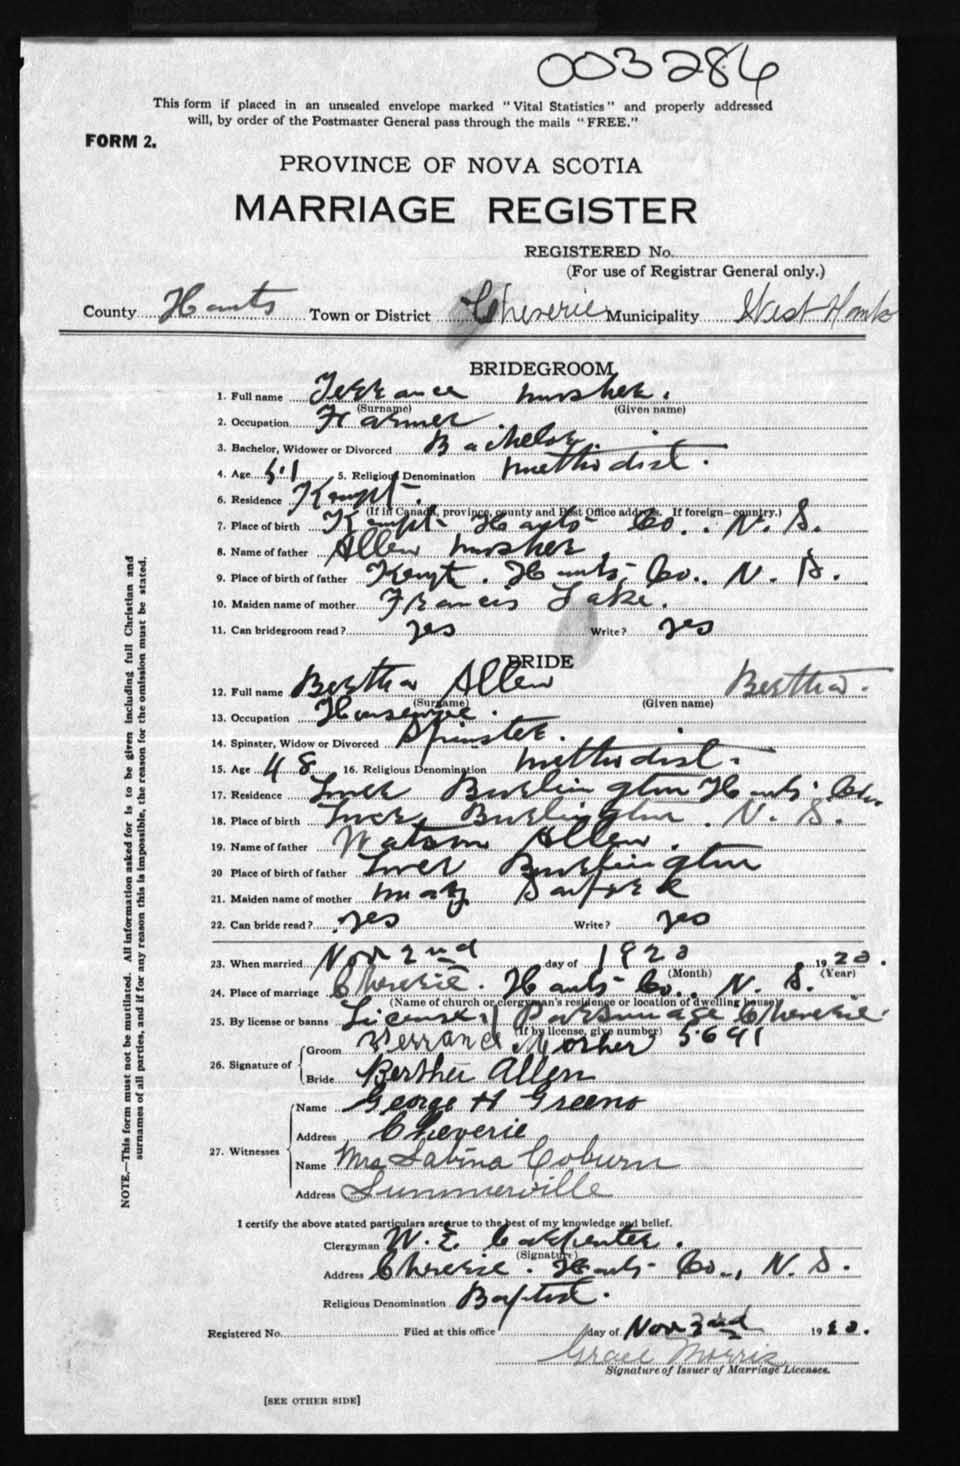 003286
This form if placed in an unsealed envelope marked "Vital Statistics" and properly addressed
will, by order of the Postmaster General pass through the mails "FREE."
FORM 2.
PROVINCE OF NOVA SCOTIA
MARRIAGE REGISTER
REGISTERED No.
(For use of Registrar General only.)
County Hants Town or District Cheverie Municipality West Hants
BRIDEGROOM
1. Full name Terrance Mosher.
(Surname) (Given name)
2. Occupation Farmer.
3. Bachelor, Widower or Divorced Bachelor.
4. Age 51 5. Religious Denomination Methodist.
6. Residence Kempt.
(If in Canada, province, county and Post Office address. If foreign—country.)
7. Place of birth Kempt Hants Co.. N. S.
8. Name of father Allen Mosher.
9. Place of birth of father Kempt. Hants Co.. N. S.
10. Maiden name of mother Francis Lake.
11. Can bridegroom read? yes Write? yes
BRIDE
12. Full name Bertha Allen Bertha.
(Surname) (Given name)
13. Occupation Housewife.
14. Spinster, Widow or Divorced Spinster.
15. Age 48 16. Religious Denomination Methodist.
17. Residence Lower Burlington Hants Co.
18. Place of birth Lower Burlington. N. S.
19. Name of father Watson Allen.
20 Place of birth of father Lower Burlington
21. Maiden name of mother Mary
22. Can bride read? yes Write? yes
23. When married Nov 2nd day of 1920 1920.
(Month) (Year)
24. Place of marriage Cheverie. Hants Co.. N. S.
(Name of church or clergyman's residence or location of dwelling house)
25. By license or banns License Parsonage Cheverie.
(If by license, give number) 5691
26. Signature of Groom Terrance Mosher
Bride Berther Allen
27. Witnesses Name George H Greeno
Address Cheverie
Name Mrs Sabina Coburn
Address Summerville
I certify the above stated particulars are true to the best of my knowledge and belief.
Clergyman W. E. Carpenter.
(Signature)
Address Cheverie. Hants Co., N. S.
Religious Denomination Baptist.
Registered No. Filed at this office day of Nov 2nd 1920.
Grace Morris
Signature of Issuer of Marriage Licenses.
[SEE OTHER SIDE]
NOTE.—This form must not be mutilated. All information asked for is to be given including full Christian and
surnames of all parties, and if for any reason this is impossible, the reason for the omission must be stated.